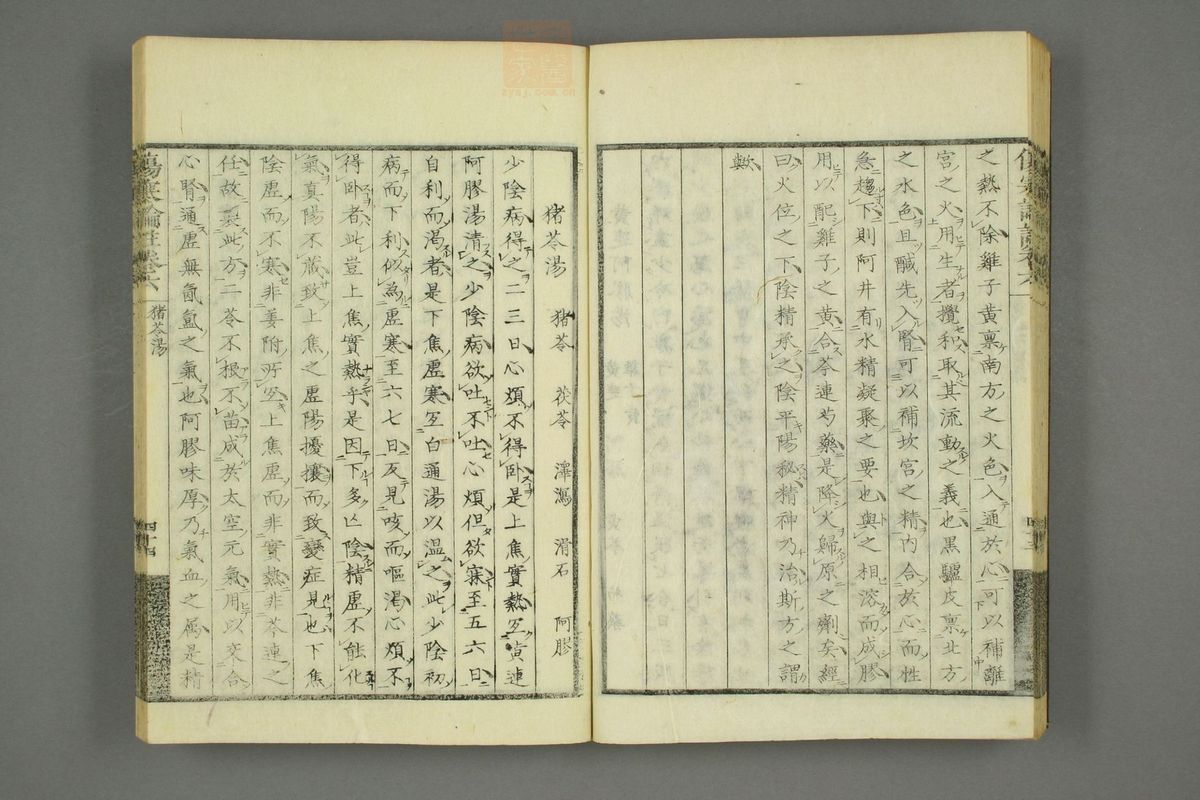 之熱不除雞子黃稟南方之火色入通於心可以補離
宮之火用生者攪和取其流動之義也黑驢皮稟北方
之水色且鹹先入腎可以補坎宮之精內合於心而性
急趨下則阿井有水精凝聚之要也與之相溶而成膠
用以配雞子之黃合芩連芍藥是降火歸原之劑矣經
曰火位之下陰精承之陰平陽秘精神乃治斯方之謂
歟
猪苓湯　猪苓　茯苓　澤瀉　滑石　阿膠
少陰病得之二三日心煩不得臥是上焦實熱宜黃連
阿膠湯清之少陰病欲吐不吐心煩但欲寐至五六日
自利而渴者是下焦虛寒宜白通湯以溫之此少陰初
病而下利似為虛寒至六七日反見咳而嘔渴心煩不
得臥者此豈上焦實熱乎是因下多亡陰精虛不能化
氣真陽不藏致上焦之虛陽擾攘而致變症見也下焦
陰虛而不寒非姜附所宜上焦虛而非實熱非芩連之
任故製此方二苓不根不苗成於太空元氣用以交合
心腎通虛無氤氳之氣也阿膠味厚乃氣血之屬是精
傷寒論註卷六
猪苓湯
四十四
四十三
zysj.com.cn